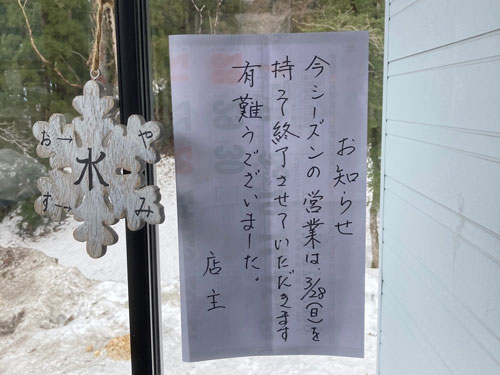 お→や
水
す→み
お知らせ
今シーズンの営業は、3/28(日)を
持って終了させていただきます
有難うございました。
店主